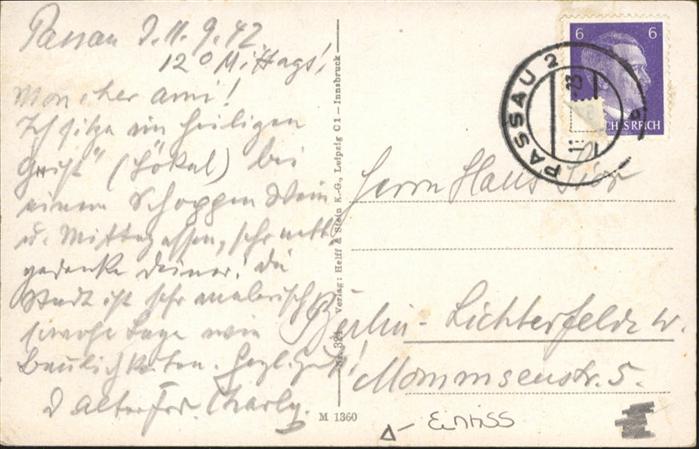 Passau D. 11. 9. 42
12° Mittags!
Mon cher ami!
Ich sitze im Heiligen
Geist" (Lokal) bei
einem Schoppen Wein
u. Mittagessen, sehr nett
gedenke Deiner! Die
Stadt ist sehr malerisch
sowohl Lage wie
Baulichkeiten. Herzlichst!
D alter Frd. Charly.
Verlag: Helff & Stein K.-G., Leipzig C 1 — Innsbruck
M 1360
6 6
PASSAU 2
Herrn Hans
Berlin-Lichterfelde W.
Mommsenstr. 5.
Einriss